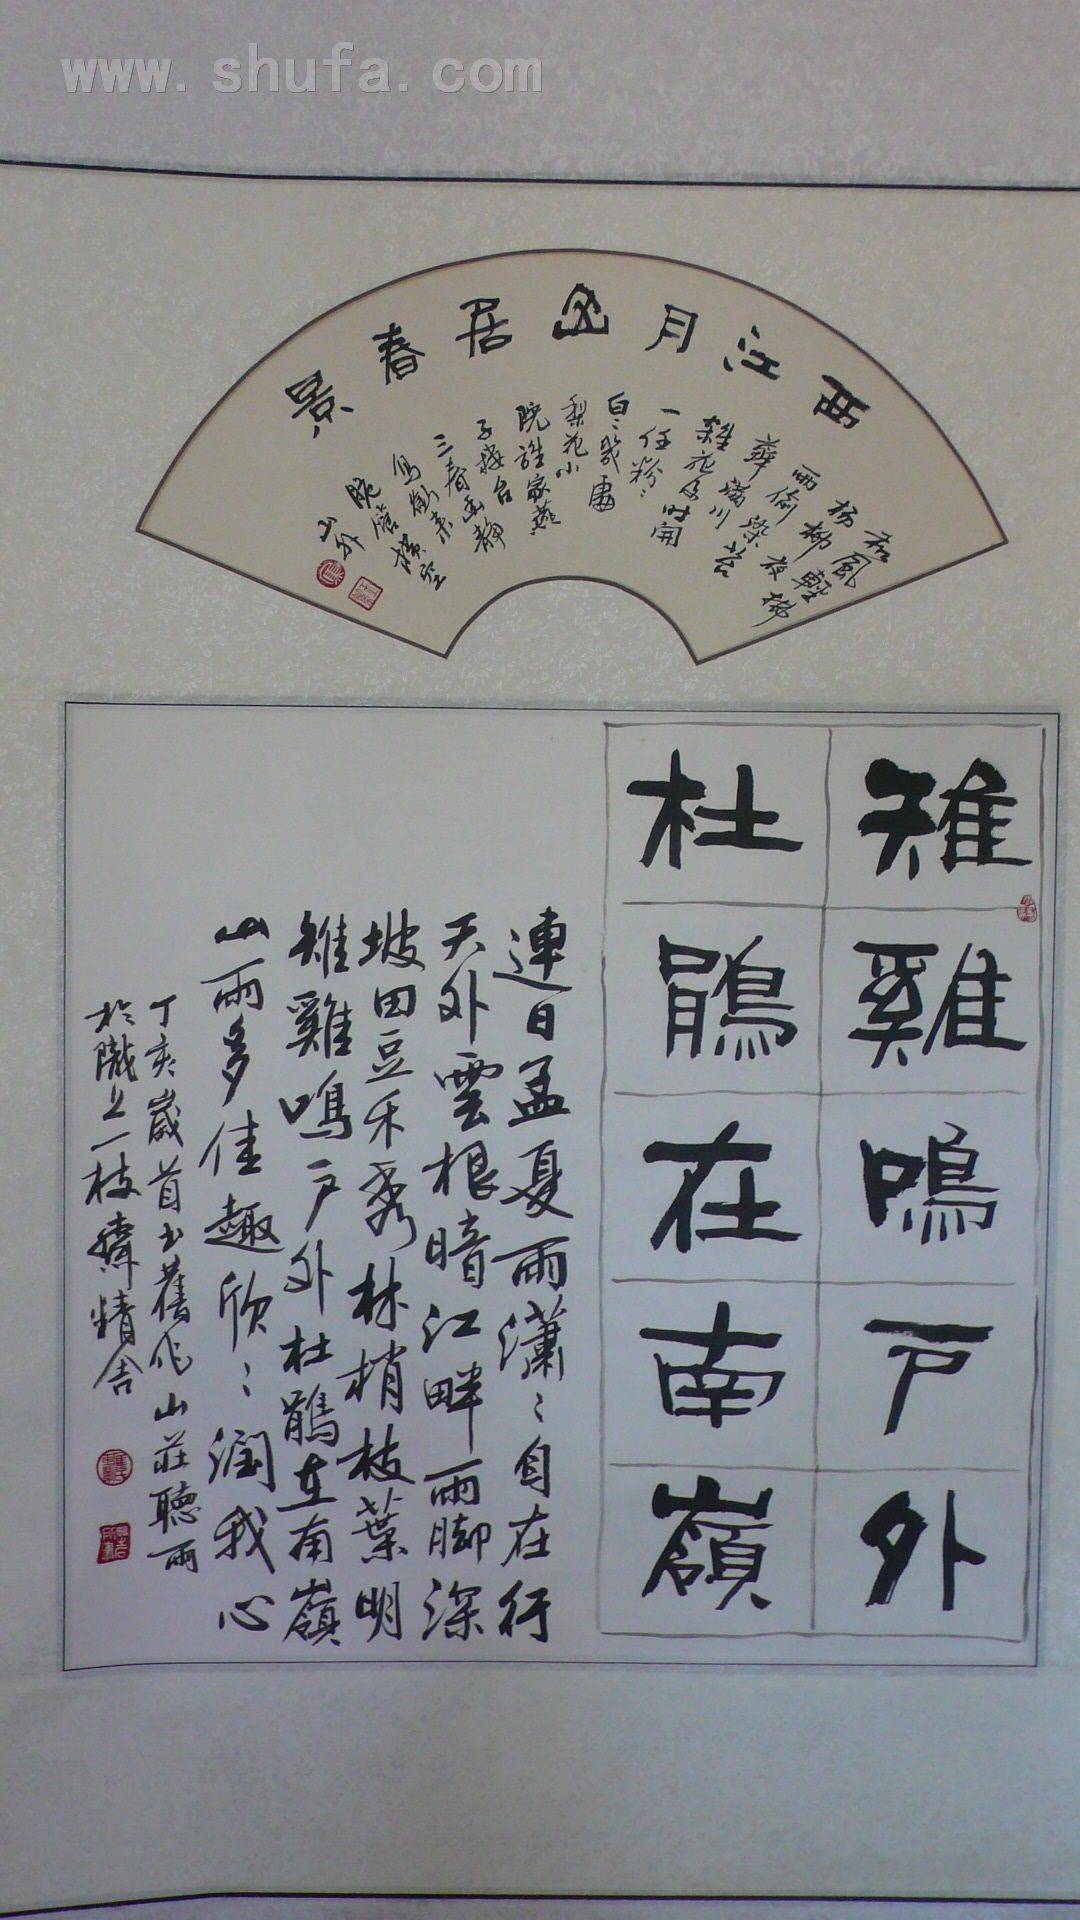 www.shufa.com
西江月山居春景
和風
楊柳輕拂
雨
滿川
雜花
一任粉
白
梨花小
院誰家燕
子樓台
三春
雉雞鳴戶外
杜鵑在南嶺
連日孟夏雨瀟〻自在行
天外雲根暗江畔雨脚深
坡田豆禾秀林梢枝葉明
雉雞鳴戶外杜鵑在南嶺
山雨多佳趣欣〻潤我心
丁亥歲首書舊作山莊聽雨
於隴上一枝精舍